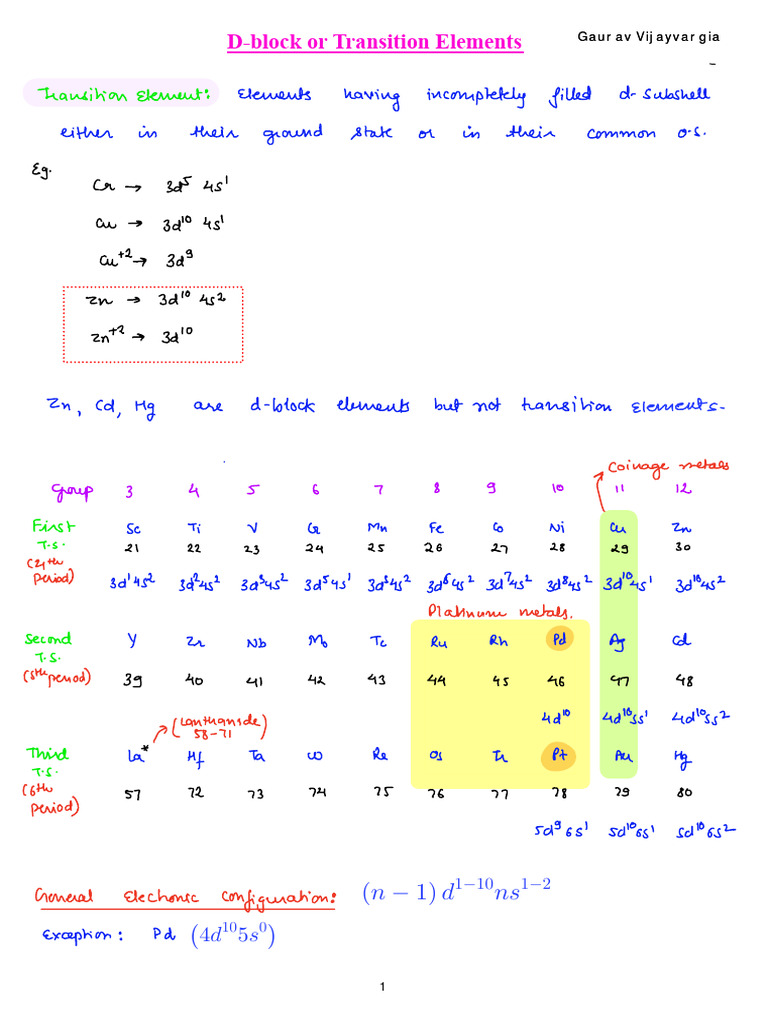 D-block or Transition Elements
Gaurav Vijayvargia
Transition Element: Elements having incompletely filled d-subshell
either in their ground state or in their common o.s.
Eg.
Cr → 3d⁵ 4s¹
Cu → 3d¹⁰ 4s¹
Cu⁺² → 3d⁹
Zn → 3d¹⁰ 4s²
Zn⁺² → 3d¹⁰
Zn, Cd, Hg are d-block elements but not transition elements.
Coinage metals
Group 3 4 5 6 7 8 9 10 11 12
First T.S. (4th period)
Sc Ti V Cr Mn Fe Co Ni Cu Zn
21 22 23 24 25 26 27 28 29 30
3d¹4s² 3d²4s² 3d³4s² 3d⁵4s¹ 3d⁵4s² 3d⁶4s² 3d⁷4s² 3d⁸4s² 3d¹⁰4s¹ 3d¹⁰4s²
Platinum metals.
Second T.S. (5th period)
Y Zr Nb Mo Tc Ru Rh Pd Ag Cd
39 40 41 42 43 44 45 46 47 48
4d¹⁰ 4d¹⁰5s¹ 4d¹⁰5s²
(Lanthanide)
58-71
Third T.S. (6th period)
La* Hf Ta W Re Os Ir Pt Au Hg
57 72 73 74 75 76 77 78 79 80
5d⁹6s¹ 5d¹⁰6s¹ 5d¹⁰6s²
General Electronic Configuration: (n − 1) d¹⁻¹⁰ns¹⁻²
Exception: Pd (4d¹⁰5s⁰)
1